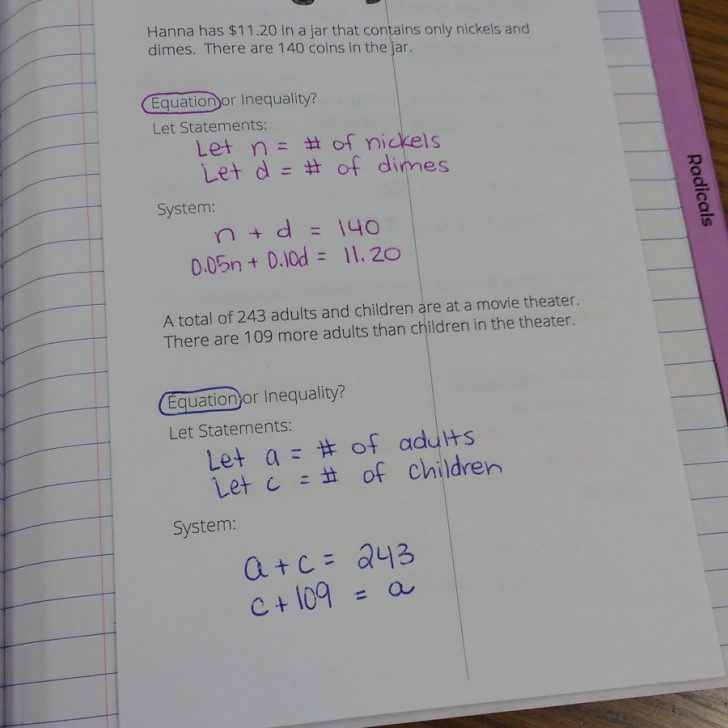 Hanna has $11.20 in a jar that contains only nickels and
dimes. There are 140 coins in the jar.
Equation or Inequality?
Let Statements:
Let n = # of nickels
Let d = # of dimes
System:
n + d = 140
0.05n + 0.10d = 11.20
A total of 243 adults and children are at a movie theater.
There are 109 more adults than children in the theater.
Equation or Inequality?
Let Statements:
Let a = # of adults
Let c = # of children
System:
a + c = 243
c + 109 = a
Radicals